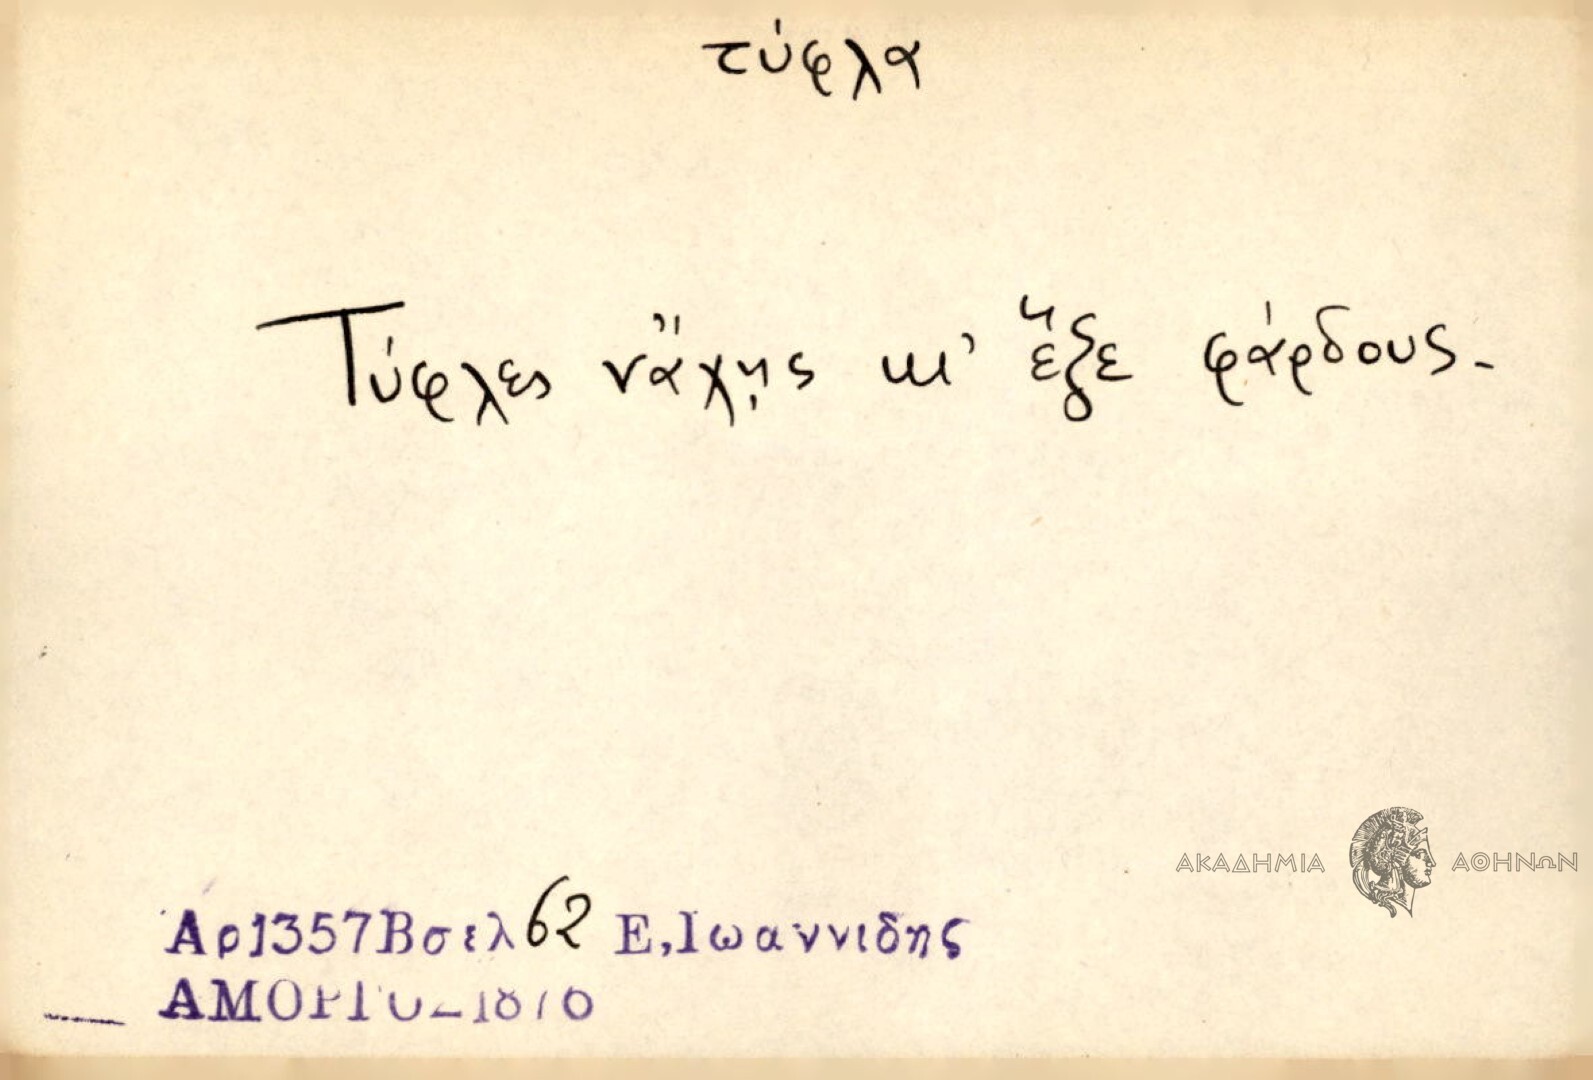 τύφλα
Τύφλες νἄχῃς κι' ἕξε φάρδους.
ΑΚΑΔΗΜΙΑ ΑΘΗΝΩΝ
Αρ1357Βσελ 62 Ε,Ιωαννιδης
ΑΜΟΡΓΟΣ 1876